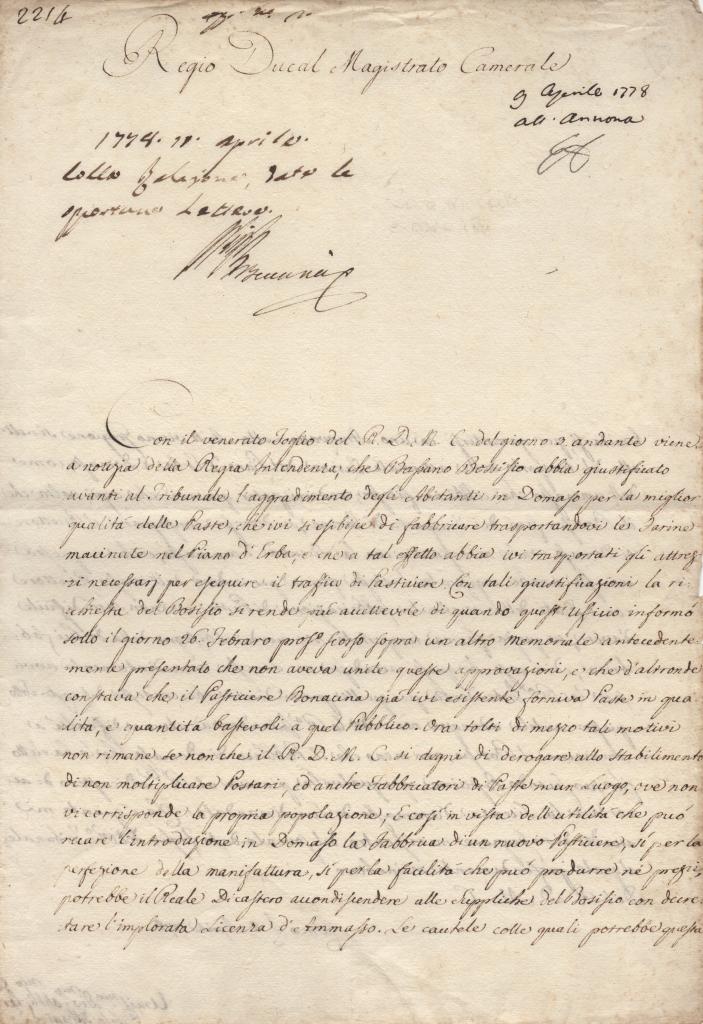 2214
Regio Ducal Magistrato Camerale
9 Aprile 1778
all' Annona
1778. 11. aprile.
colla Relazione, date le
opportune Lettere.
Beccaria
Con il venerato Foglio del R. D. M. C. del giorno 9. andante viene
a notizia della Regia Intendenza, che Bassano Bosisio abbia giustificato
avanti al Tribunale l'aggradimento degli Abitanti in Domaso per la miglior
qualità delle Paste, che ivi si esibisce di fabbricare trasportandovi le Farine
macinate nel Piano d'Erba, e che a tal effetto abbia ivi trasportati gli attrez
zi necessarj per eseguire il traffico di Pasticiere. Con tali giustificazioni la ri,
chiesta del Bosisio si rende più accettevole di quando quest' Ufficio informò
sotto il giorno 26. Febraro pross.º scorso sopra un altro memoriale antecedente,
mente presentato che non aveva unite queste approvazioni, e che d'altronde
constava che il Pasticiere Bonacina già ivi esistente forniva Paste in qua
lità, e quantità bastevoli a quel Pubblico. Ora tolti di mezzo tali motivi
non rimane se non che il R. D. M. C. si degni di derogare allo stabilimento
di non moltiplicare Postari, ed anche Fabbricatori di Paste in un Luogo, ove non
vi corrisponde la propria popolazione; E così in vista dell' utilità che può
recare l'introduzione in Domaso la Fabbrica di un nuovo Pasticiere, sì per la
perfezione della manifattura, sì per la facilità che può produrre ne' prezzi,
potrebbe il Reale Dicastero accondiscendere alle Suppliche del Bosisio con decre,
tare l'implorata Licenza d'Ammasso. Le cautele colle quali potrebbe questa